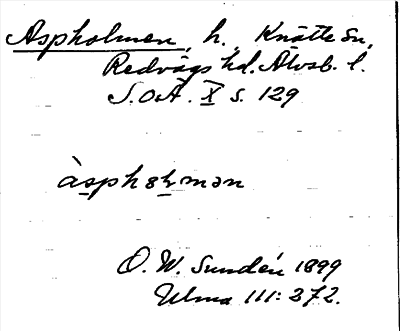 Aspholmen, h., Knätte sn,
Redvägs hd. Älvsb. l.
S.O.Ä. X s. 129
àsphɵɫmən
O. W. Sundén 1899
Ulma 111: 372.